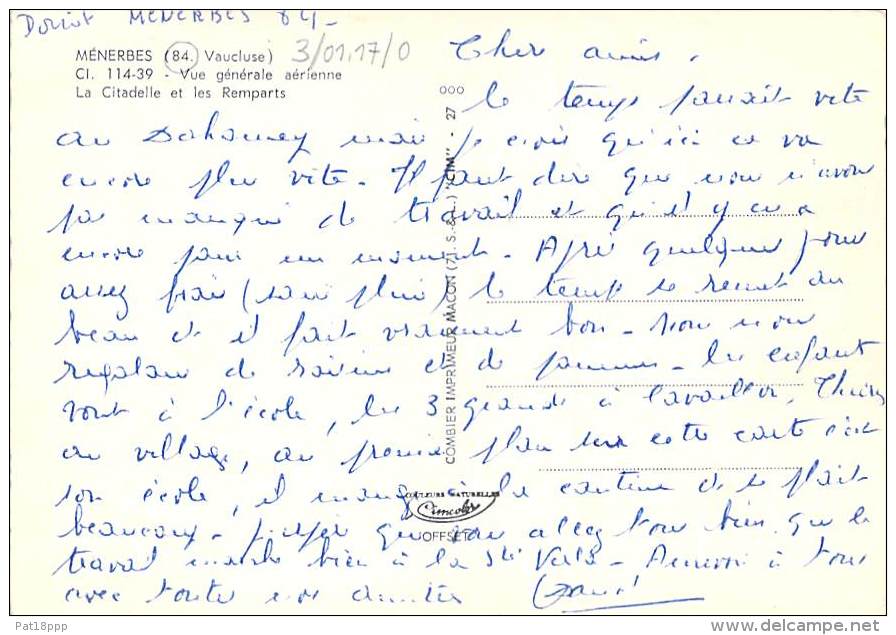 MENERBES 84-
MÉNERBES (84. Vaucluse)
Cl. 114-39 - Vue générale aérienne
La Citadelle et les Remparts
3/01.17/0
Cher amis,
le temps passait vite
au Dahomey mais je crois qu'ici ce va
encore plus vite - Il faut dire que nous n'avons
pas manqué de travail et qu'il y en a
encore pour un moment. Après quelques jours
assez frais (sans pluie) le temps se remet au
beau et il fait vraiment bon - Nous nous
régalons de raisins et de pommes - les enfants
vont à l'école, les 3 grands à Cavaillon, Thierry
au village, au premier plan sur cette carte c'est
son école, il mange à la cantine et se plait
beaucoup - J'espère que vous allez tous bien, que le
travail marche bien à la Sté - Amitiés à tous
avec toutes nos amitiés
COMBIER IMPRIMEUR MACON (71. S.-&-L.) "CIM" - 27 000
COULEURS NATURELLES
Cimcolor
OFFSET
Pat18ppp
www.delcampe.net